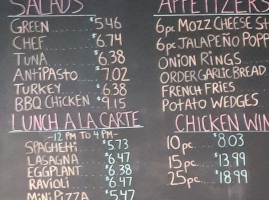 SALADS
GREEN $5.46
CHEF $6.74
TUNA $6.38
ANTiPASTO $7.02
TURKEY $6.38
BBQ CHICKEN $9.15
LUNCH A LA CARTE
-12 PM TO 4 PM-
SPAGHETTI $5.73
LASAGNA $6.47
EGGPLANT $6.38
RAVIOLI $6.47
MiNi PIZZA $5.47
APPETIZERS
6pc MOZZ CHEESE ST
6pc JALAPEÑO POPP
ONION RINGS
ORDER GARLIC BREAD
FRENCH FRIES
POTATO WEDGES
CHICKEN WIN
10 pc $8.03
15 pc $13.99
25 pc $18.99